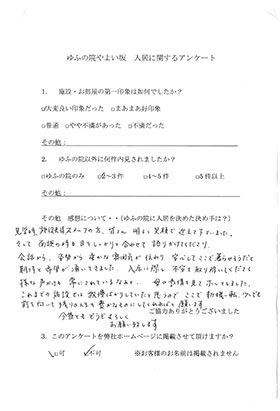 ゆふの院やよい坂　入居に関するアンケート
1.　施設・お部屋の第一印象は如何でしたか？
□大変良い印象だった　□まあまあ好印象
□普通　□やや不満があった　□不満だった
その他：
2.　ゆふの院以外に何件内見されましたか？
□ゆふの院のみ　☑2～3件　□4～5件　□5件以上
その他：
その他　感想について・・(ゆふの院に入居を決めた決め手は？)
見学時、施設長様スタッフの方、皆さん 明るく笑顔で迎えて下さいました。
そして 面談の時も目をしっかりと合わせて 語りかけてくださり、
会話から、姿勢から 豊かな雰囲気が伝わり 安心してここで暮らせそうだと
期待と希望が湧いてきました。入居に際し 不安を取り除いてくださる
様な声がけも 常にされているなど… 母の表情を見てホッとしました。
これまでの施設では
今後ともどうぞよろしく
お願い致します
ご協力ありがとうございました
3.　このアンケートを弊社ホームページに掲載させて頂けますか？
□可　☑不可　※お客様のお名前は掲載しません